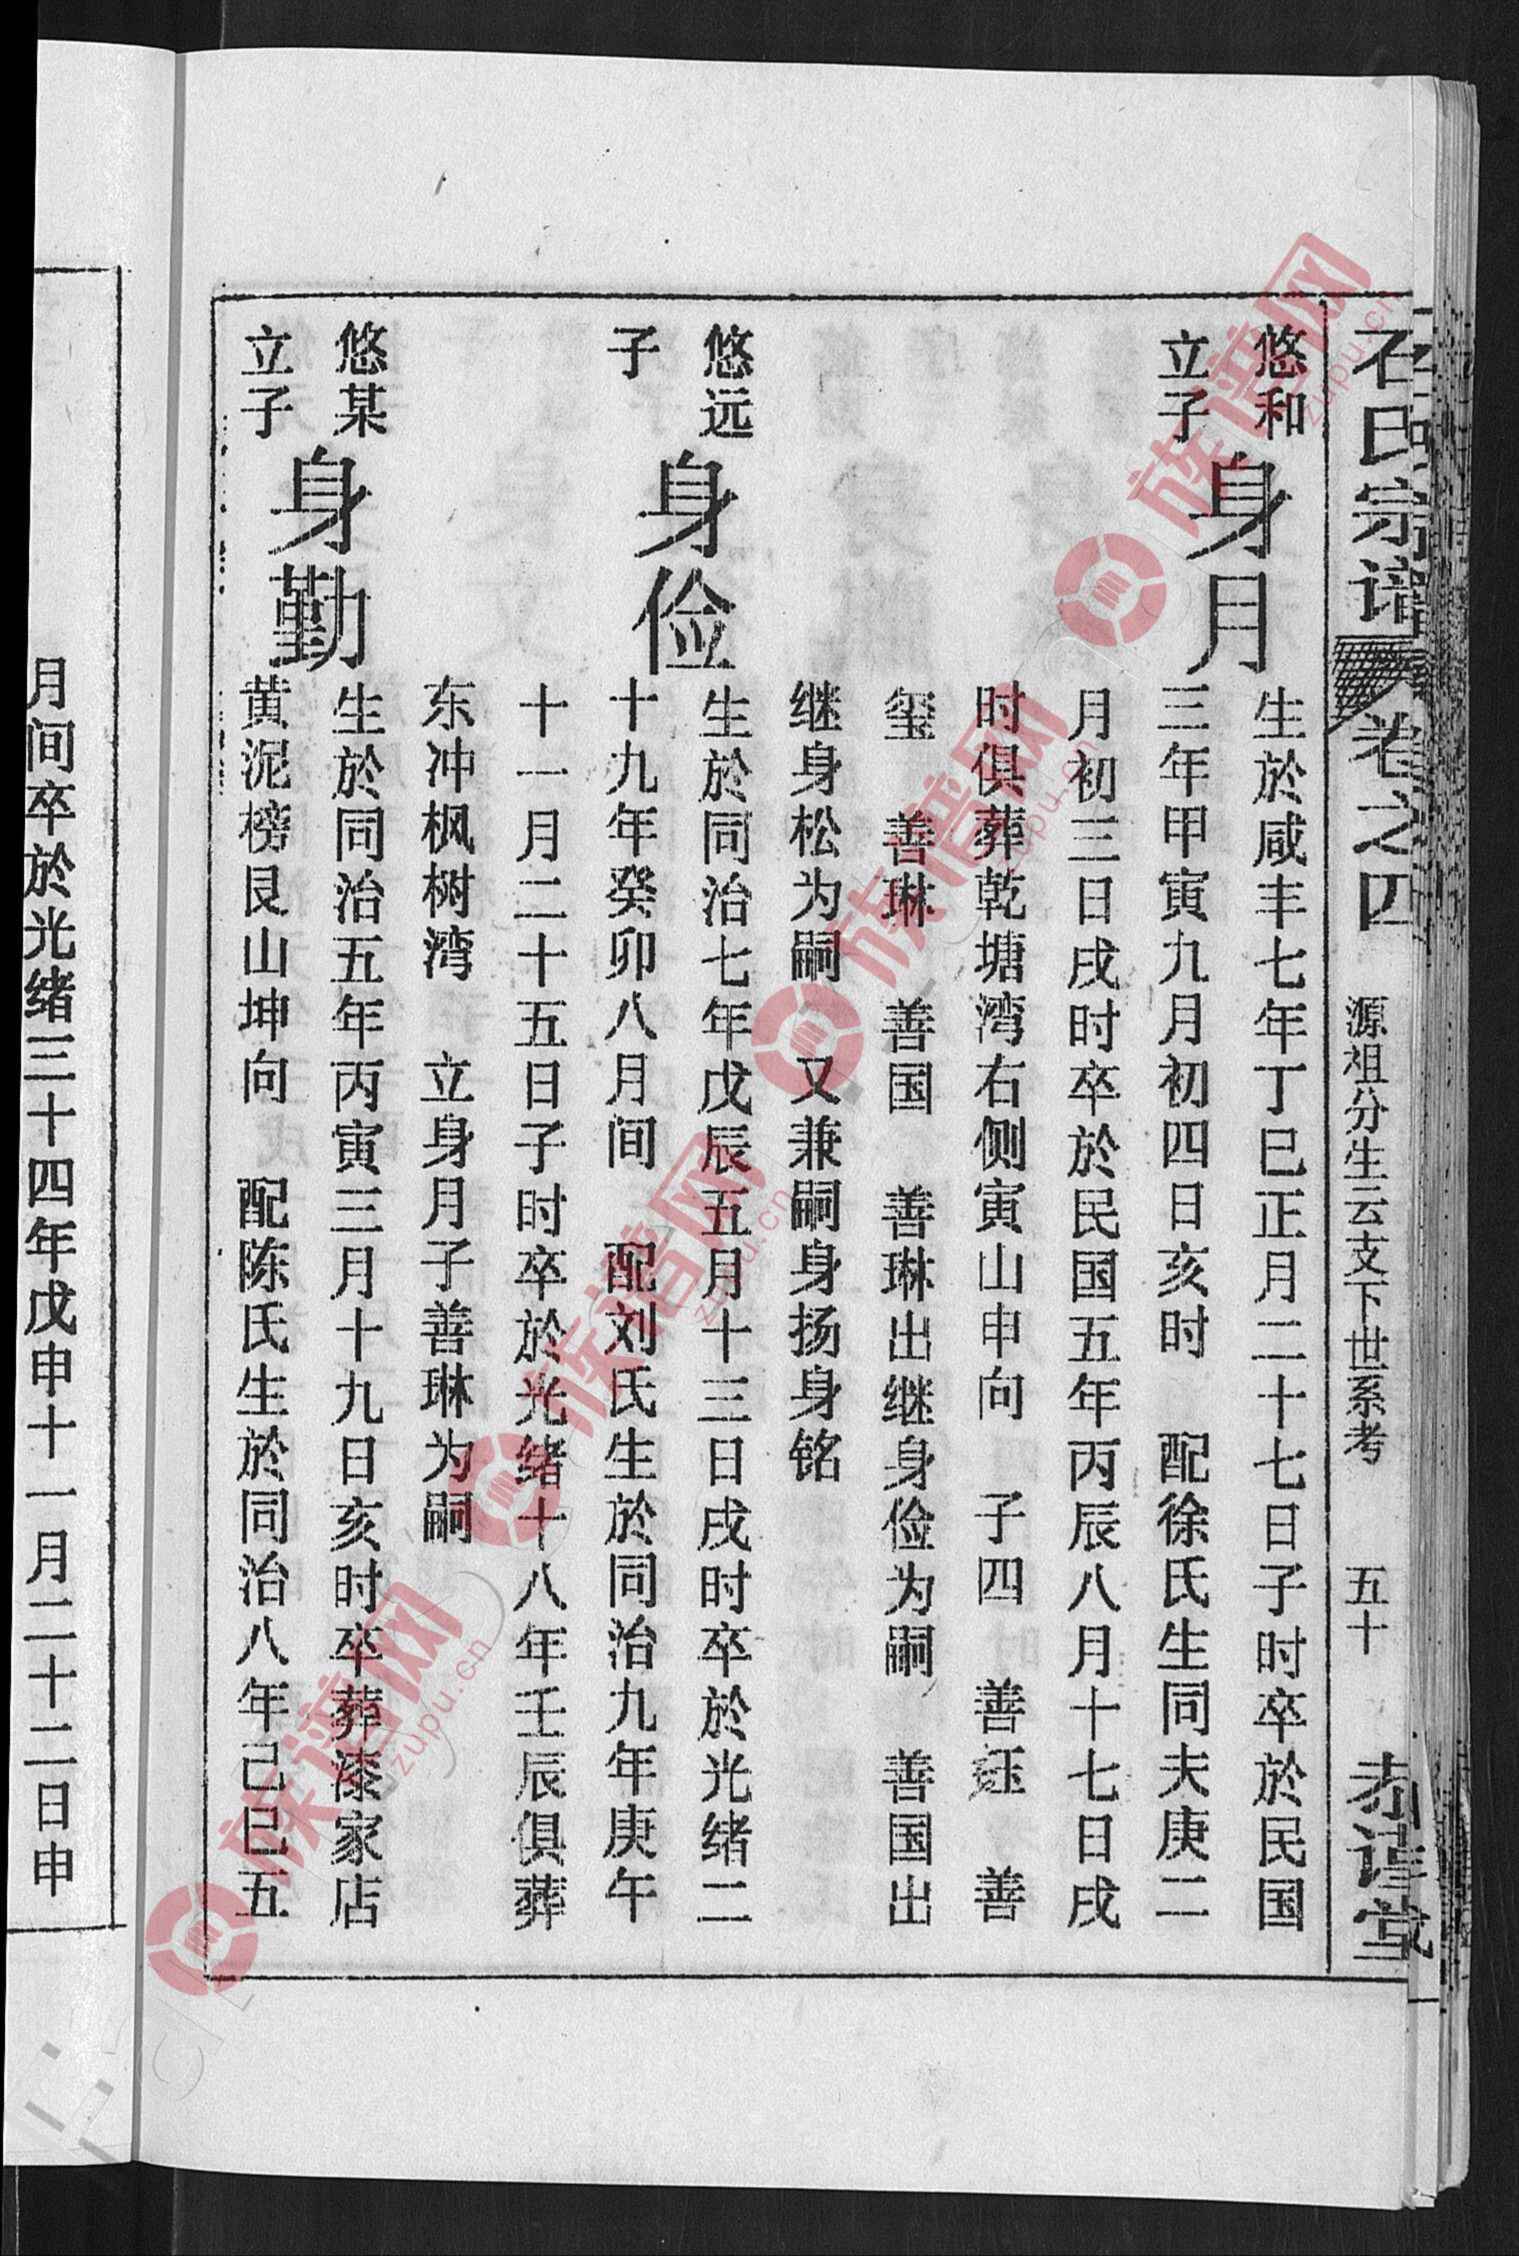 石氏宗谱 卷之四 源祖分生云支下世系考 五十
悠和
立子
身月
生於咸丰七年丁巳正月二十七日子时卒於民国
三年甲寅九月初四日亥时 配徐氏生同夫庚二
月初三日戌时卒於民国五年丙辰八月十七日戌
时俱葬乾塘湾右侧寅山申向 子四 善 善
玺 善琳 善国 善琳出继身俭为嗣 善国出
继身松为嗣 又兼嗣身扬身铭
悠远
子
身俭
生於同治七年戊辰五月十三日戌时卒於光绪二
十九年癸卯八月间 配刘氏生於同治九年庚午
十一月二十五日子时卒於光绪十八年壬辰俱葬
东冲枫树湾 立身月子善琳为嗣
悠某
立子
身勤
生於同治五年丙寅三月十九日亥时卒葬漆家店
黄泥榜艮山坤向 配陈氏生於同治八年己巳五
月间卒於光绪三十四年戊申十一月二十二日申
族谱网
zupu.cn
族谱网
zupu.cn
族谱网
zupu.cn
族谱网
zupu.cn